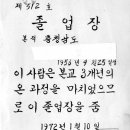 제512호
졸업장
본적 충청남도
1956년 9월25일생
이 사람은 본교 3개년의
온 과정을 마치었으므
로 이 졸업장을 줌
1972년 1월 10일